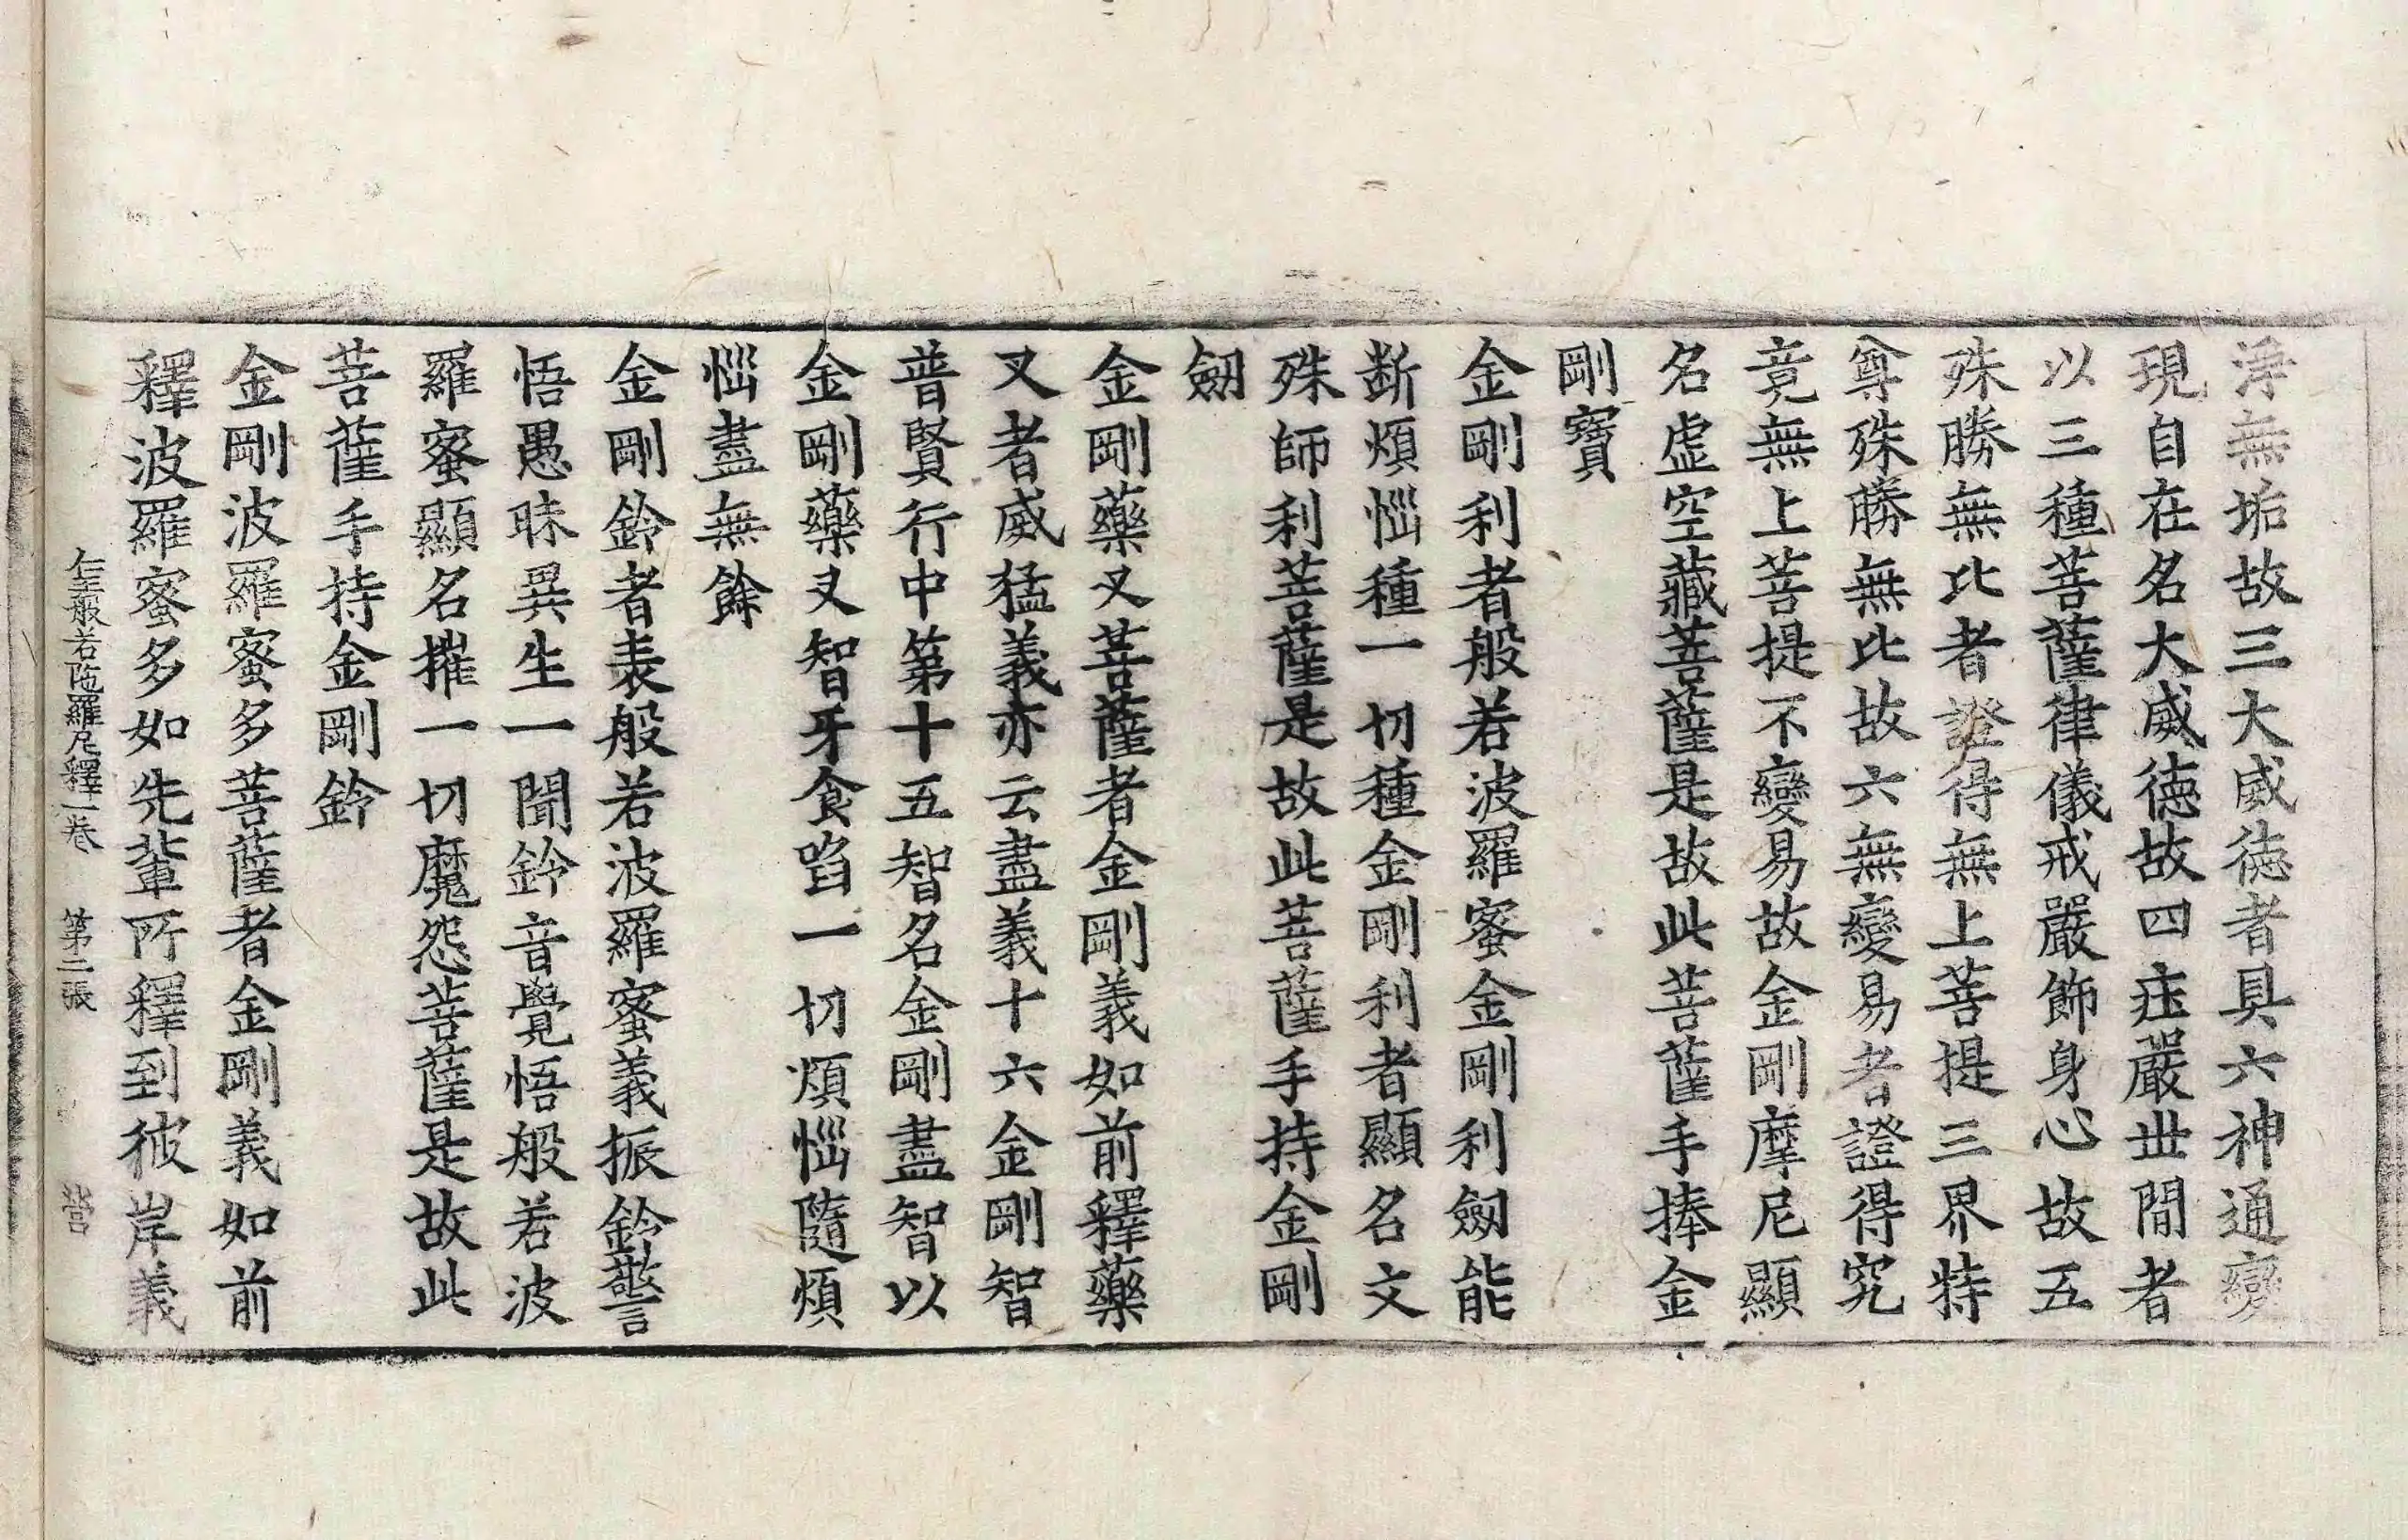 淨無垢故三大威德者具六神通變
現自在名大威德故四㽵嚴世間者
以三種菩薩律儀戒嚴飾身心故五
殊勝無比者證得無上菩提三界特
尊殊勝無比故六無變易者證得究
竟無上菩提不變易故金剛摩尼顯
名虛空藏菩薩是故此菩薩手捧金
剛寶
金剛利者般若波羅蜜金剛利劔能
断煩惱種一切種金剛利者顯名文
殊師利菩薩是故此菩薩手持金剛
劔
金剛藥叉菩薩者金剛義如前釋藥
叉者威猛義亦云盡義十六金剛智
普賢行中第十五智名金剛盡智以
金剛藥叉智牙食啗一切煩惱隨煩
惱盡無餘
金剛鈴者表般若波羅蜜義振鈴警
悟愚昧異生一聞鈴音覺悟般若波
羅蜜顯名摧一切魔怨菩薩是故此
菩薩手持金剛鈴
金剛波羅蜜多菩薩者金剛義如前
釋波羅蜜多如先輩所釋到彼岸義
仁王般若陁羅尼釋一卷 第二張 營